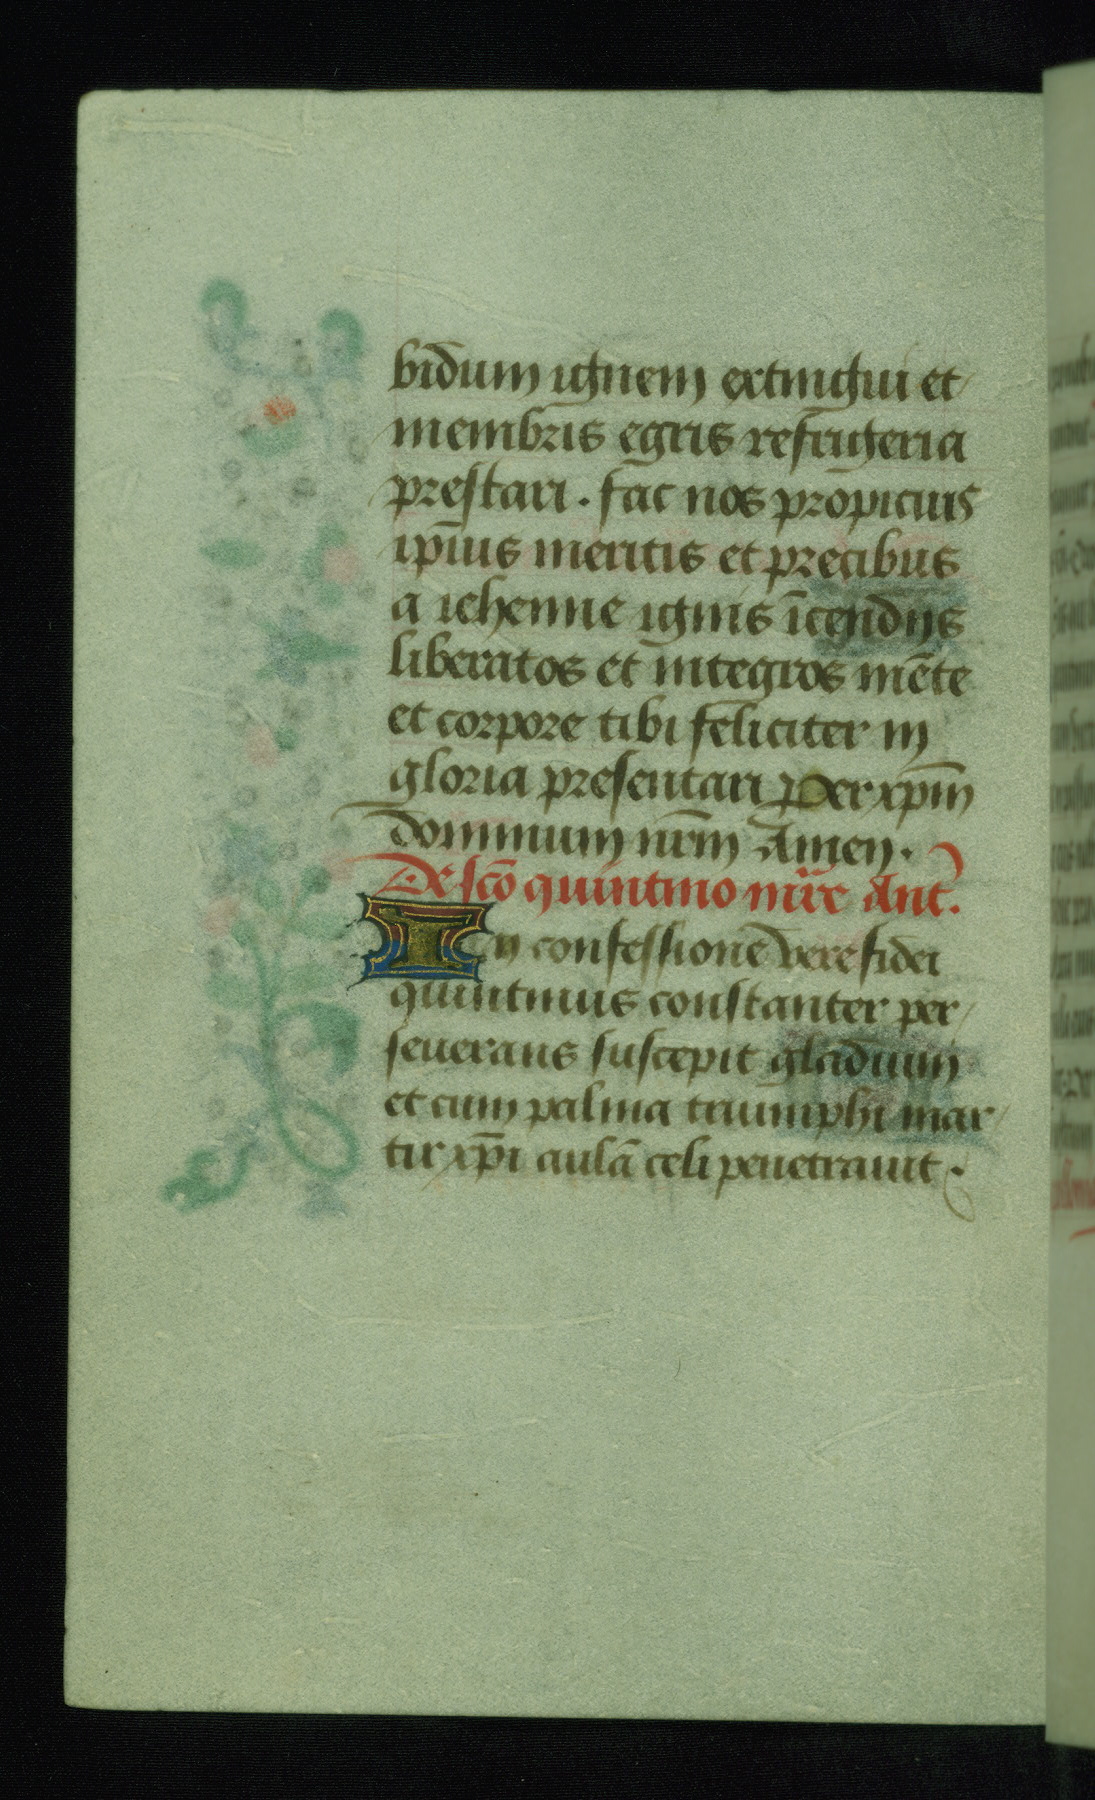 bidum ignem extingui et
membris egris refrigeria
prestari. fac nos propicius
ip̄ius meritis et precibus
a iehenne ignis īcendijs
liberatos et integros mēte
et corpore tibi feliciter in
gloria presentari per xp̄m
dominum nr̄m Amen.
De sc̄o quintino mr̄e Ant.
In confessione vere fidei
quintinus constanter per
seuerans suscepit gladium
et cum palma triumphi mar
tir xp̄i aulā celi penetrauit.